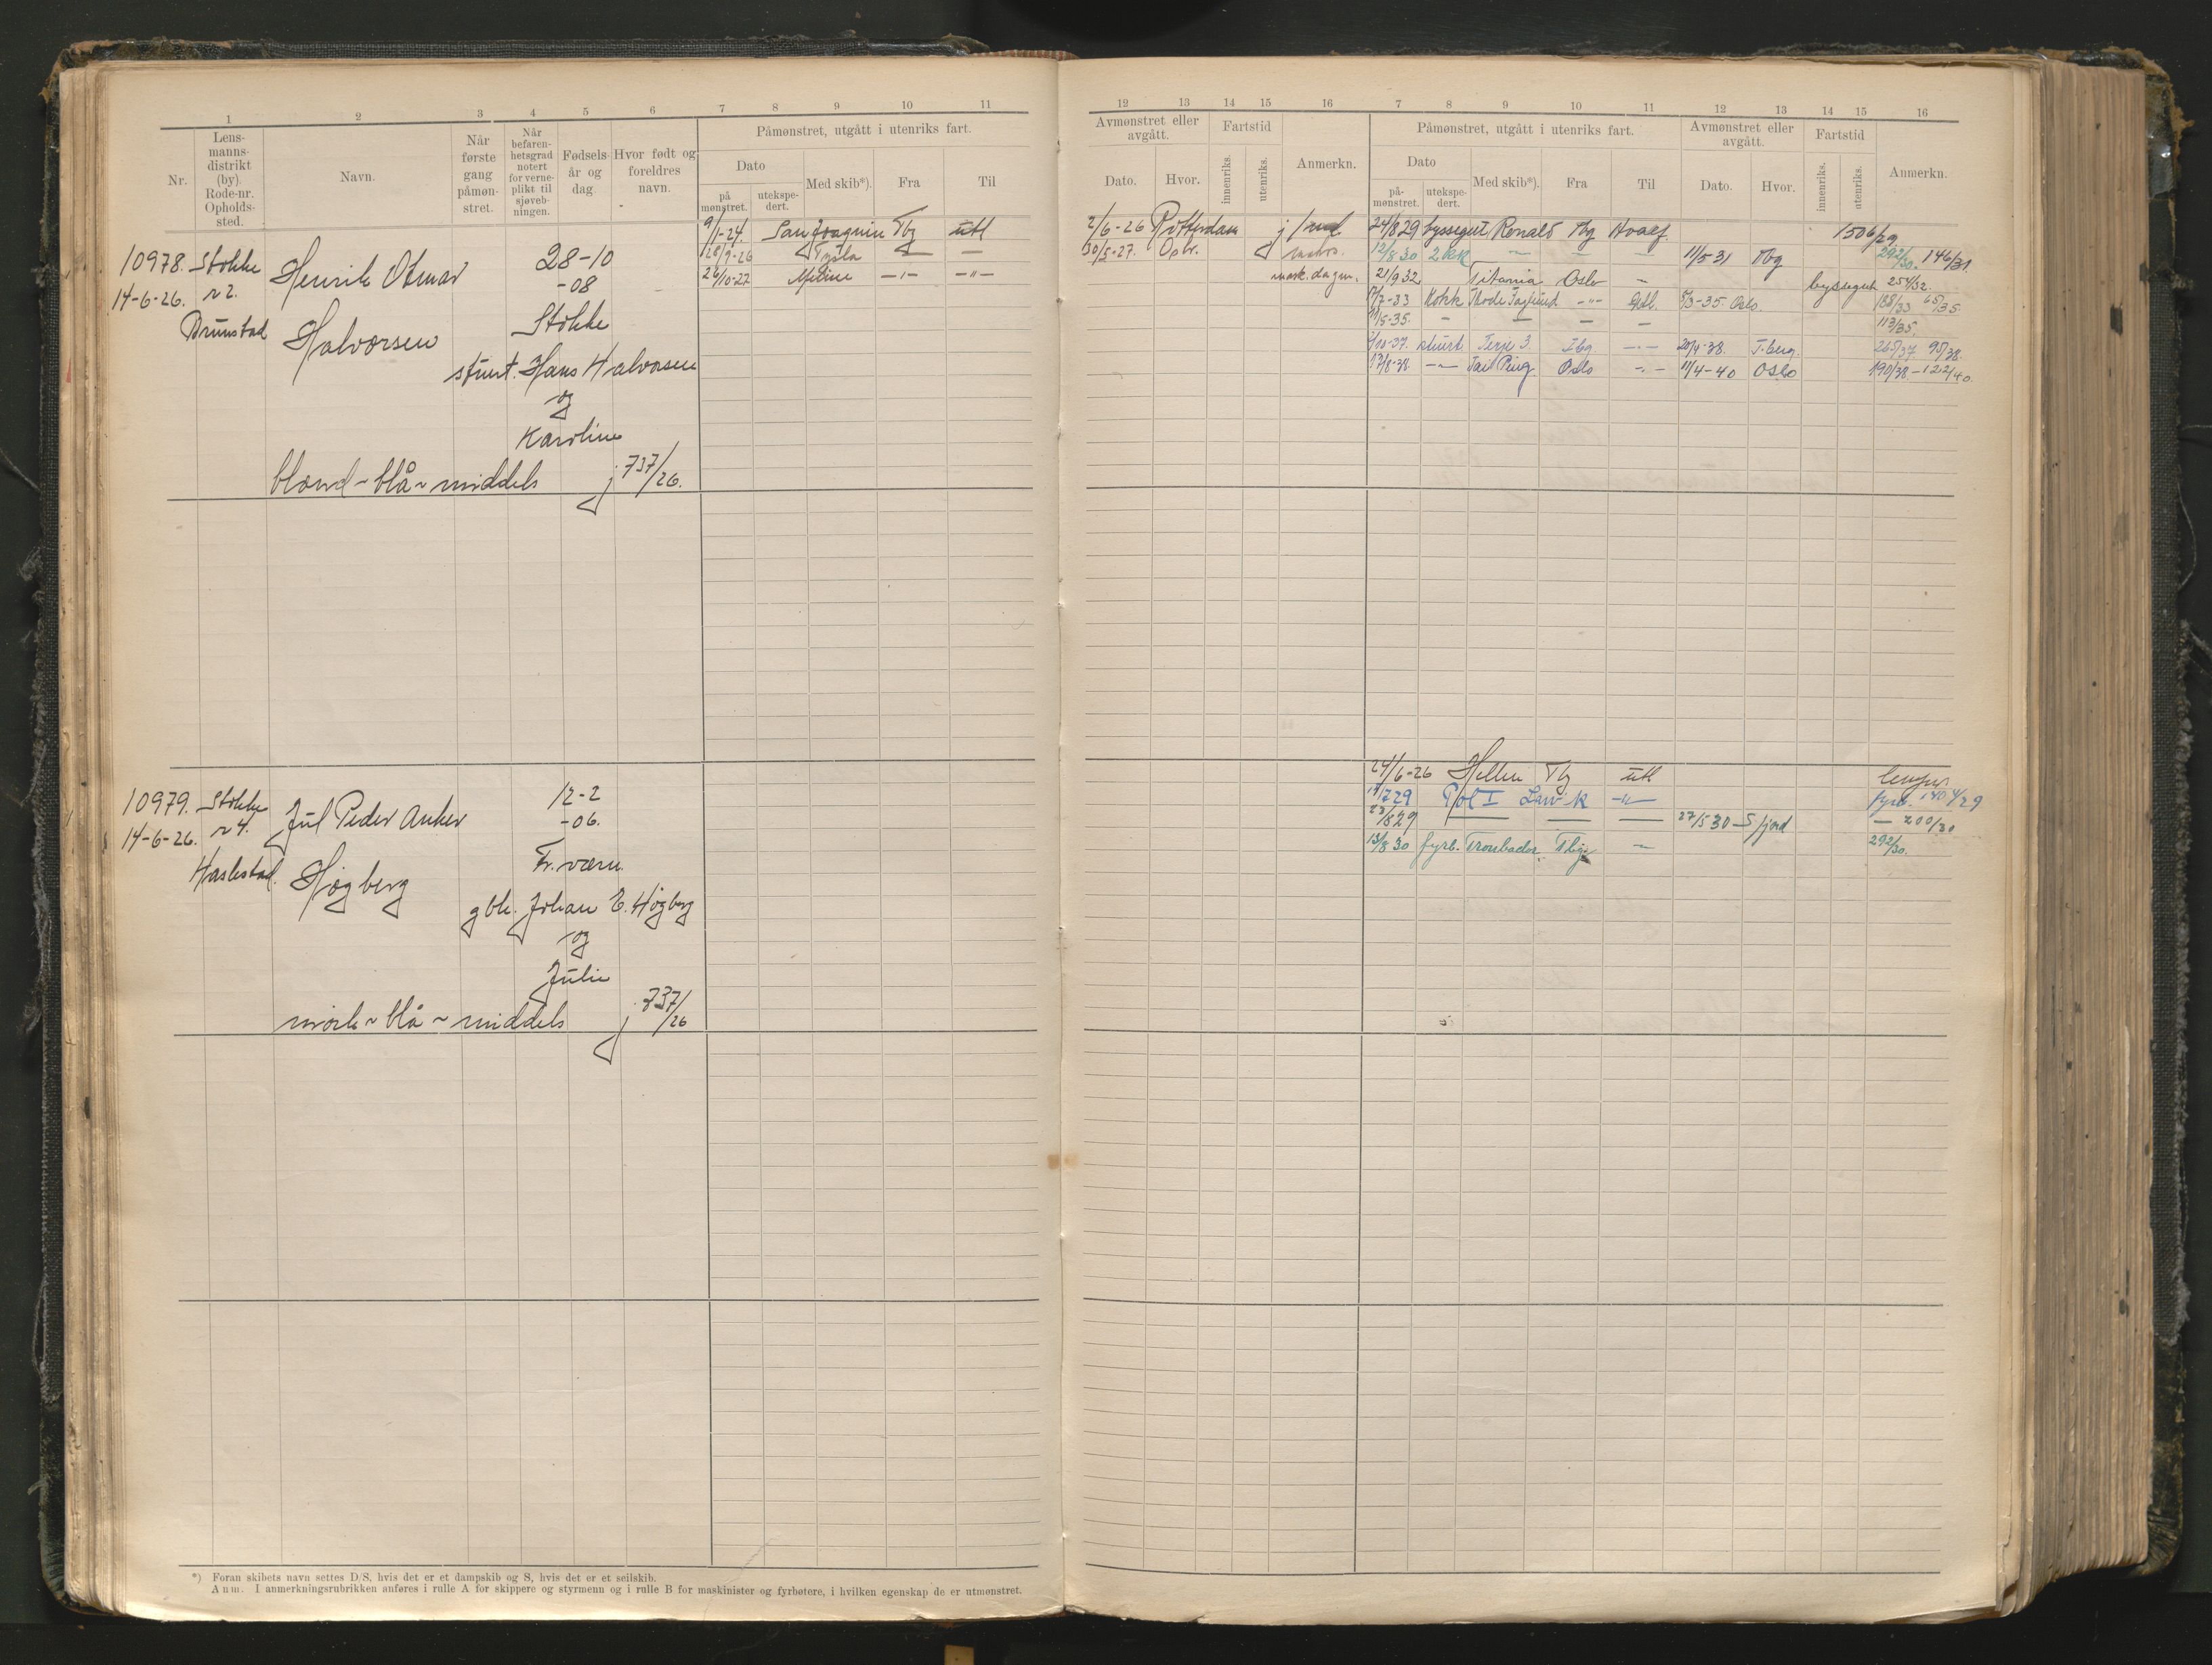 1 2 3 4 5 6 7 8 9 10 11
Nr. Lens-manns-distrikt (by). Rode-nr. Opholds-sted. Navn. Når første gang påmøn-stret. Når befaren-hetsgrad notert for verne-plikt til sjøveb-ningen. Fødsels-år og dag. Hvor født og foreldres navn. Påmønstret, utgått i utenriks fart.
Dato Med skib*). Fra Til
på mønstret. utekspe-dert.
9/1-24. San Joaquin Tbg utl
10978. Stokke Henrik Otmar 28-10 Tysla — —
14-6-26. r 2. -08 26/10-27 —"— —"—
Brunstad Halvorsen Stokke
stuert. Hans Halvorsen
og
Karoline
blond ~ blå ~ middels j 737/26.
10979. Stokke Jul Peder Anker 12-2
14-6-26. r 4. -06.
Haslestad. Høgberg Fr.værn.
gbr. Johan E. Høgberg
og
Julie
mörk ~ blå ~ middels j 737/26
*) Foran skibets navn settes D/S, hvis det er et dampskib og S, hvis det er et seilskib.
Anm. I anmerkningsrubrikken anføres i rulle A for skippere og styrmenn og i rulle B for maskinister og fyrbøtere, i hvilken egenskap de er utmønstret.
12 13 14 15 16 7 8 9 10 11 12 13 14 15 16
Avmønstret eller avgått. Fartstid Anmerkn. Påmønstret, utgått i utenriks fart. Avmønstret eller avgått. Fartstid Anmerkn.
Dato. Hvor. innenriks. utenriks. Dato Med skib*). Fra Til Dato. Hvor. innenriks. utenriks.
på-mønstret. utekspe-dert.
2/6-26 Rotterdam j 24/8 29 byssegut Ronald Tbg Hvalf. 1506/29
30/5-27. Opbr. 12/8 30 2 kk — — — 11/5 31 Tbg 292/30. 146/31
21/9 32 Titania Oslo — byssegut 254/32.
7-33 Kokk Thode Fagelund —"— 3-35 Oslo. 188/33 65/35.
11/5-35. — — — — 113/35.
10-37. stuert. Terje 3. Tbg —"— 20/4-38. T.berg. 265/37 95/38.
8-38. —"— Tai Ping Oslo —"— 11/4-40 Oslo 190/38 - 122/40.
24/6-26 Hellen Tbg utl
7 29 Pol I Larvik —"— fyrb. 140 4/29
23/8 29 — — — 27/5 30 - Sfjord — 200/30
13/8 30 fyrb. Troubador. Tbg. — 292/30.